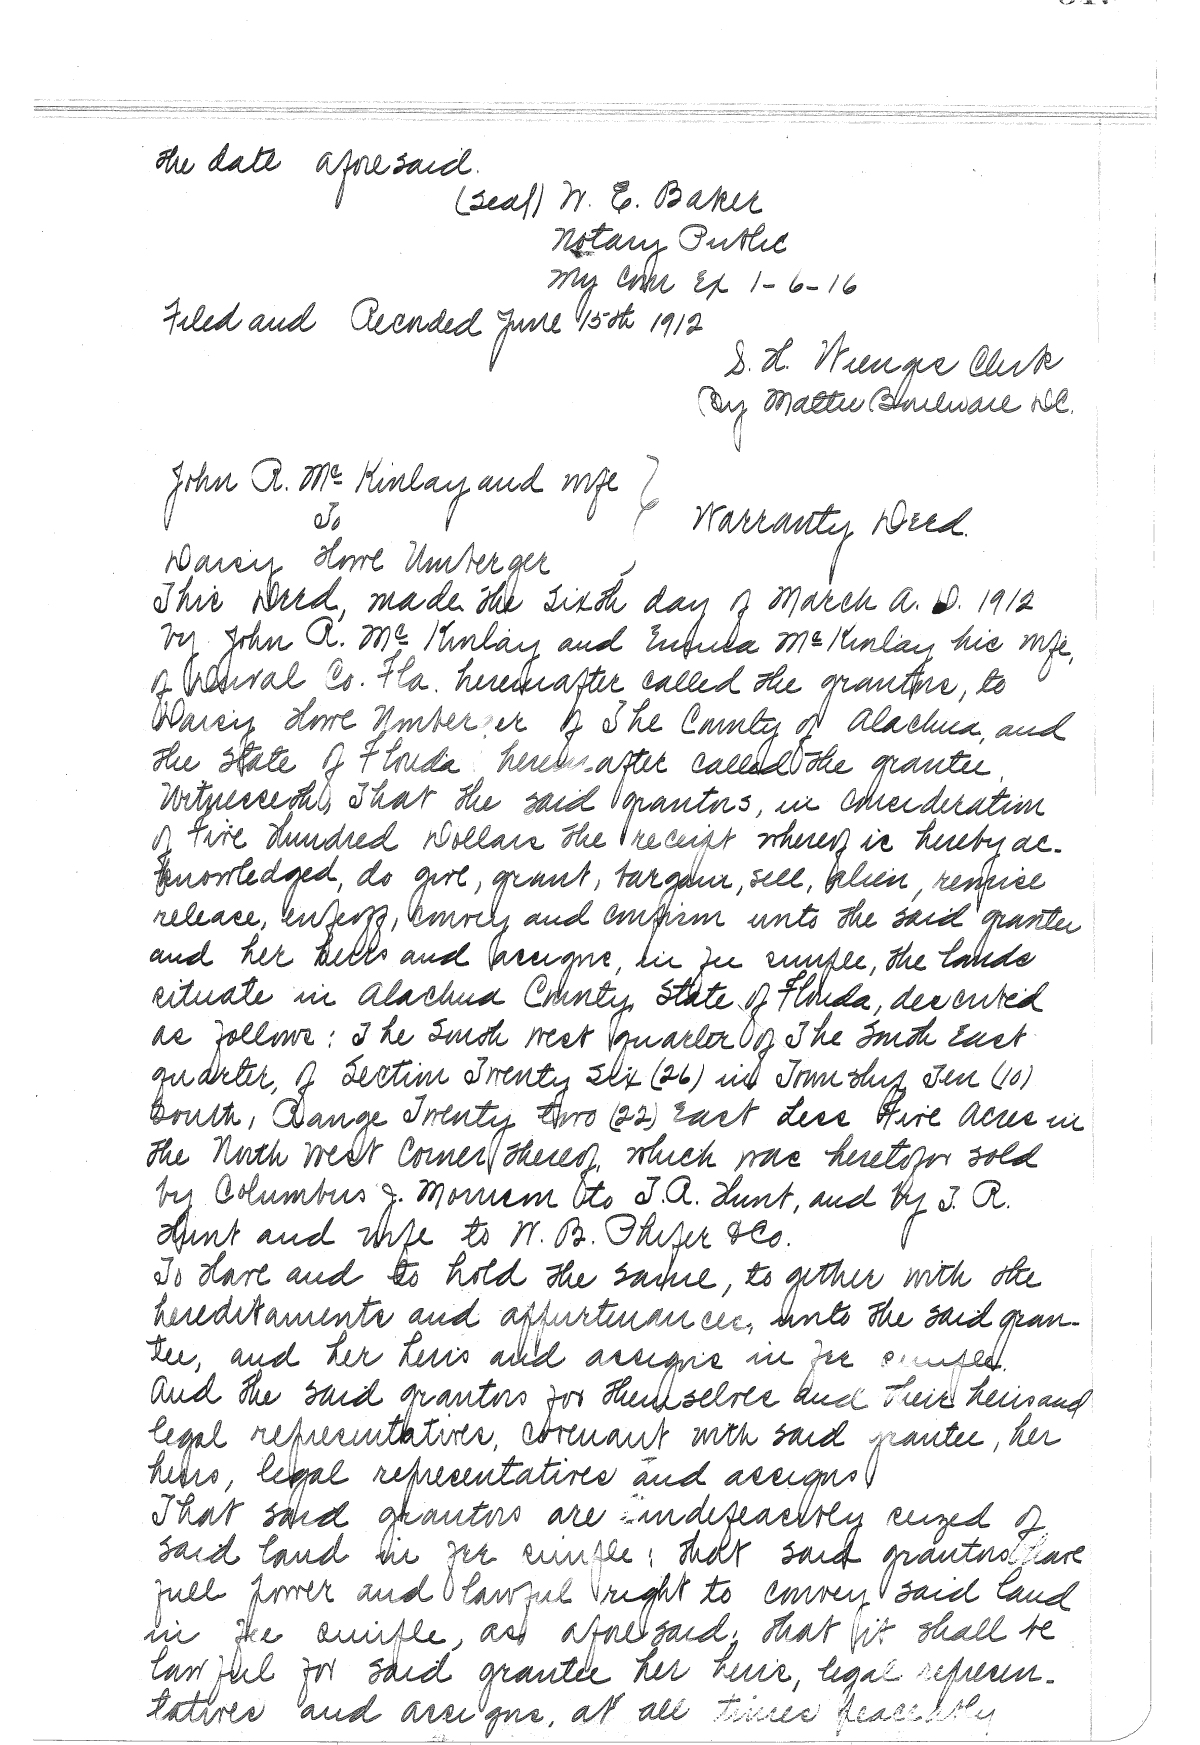 the date aforesaid.
(Seal) W. E. Baker
Notary Public
My Com Ex 1-6-16
Filed and Recorded June 15th 1912
S. H. Wienges Clerk
By Mattie Bouleware D.C.
John R. McKinlay and wife
To
Warranty Deed.
Daisy Howe Umberger
This Deed, made the Sixth day of March A. D. 1912
by John R. McKinlay and Emma McKinlay his wife,
of Duval Co. Fla. hereinafter called the grantors, to
Daisy Howe Umberger of The County of Alachua, and
the State of Florida hereinafter called the grantee,
Witnesseth, That the said grantors, in consideration
of Five Hundred Dollars the receipt whereof is hereby ac-
knowledged, do give, grant, bargain, sell, alien, remise
release, enfeoff, convey and confirm unto the said grantee
and her heirs and assigns, in fee simple, the lands
situate in Alachua County, State of Florida, described
as follows: The South West quarter of The South East
quarter, of Section Twenty Six (26) in Township Ten (10)
South, Range Twenty two (22) East Less Five Acres in
the North West Corner thereof, which was heretofor sold
by Columbus J. Morrison to T. A. Hunt, and by T. R.
Hunt and wife to W. B. Phifer & Co.
To Have and to hold the same, to gether with the
hereditaments and appurtenances, unto the said gran-
tee, and her heirs and assigns in fee simple.
And the said grantors for themselves and their heirs and
legal representatives, covenant with said grantee, her
heirs, legal representatives and assigns
That said grantors are indefeasibly seized of
said land in fee simple; that said grantors have
full power and lawful right to convey said land
in fee simple, as aforesaid; that it shall be
lawful for said grantee her heirs, legal represen-
tatives and assigns, at all times peaceably